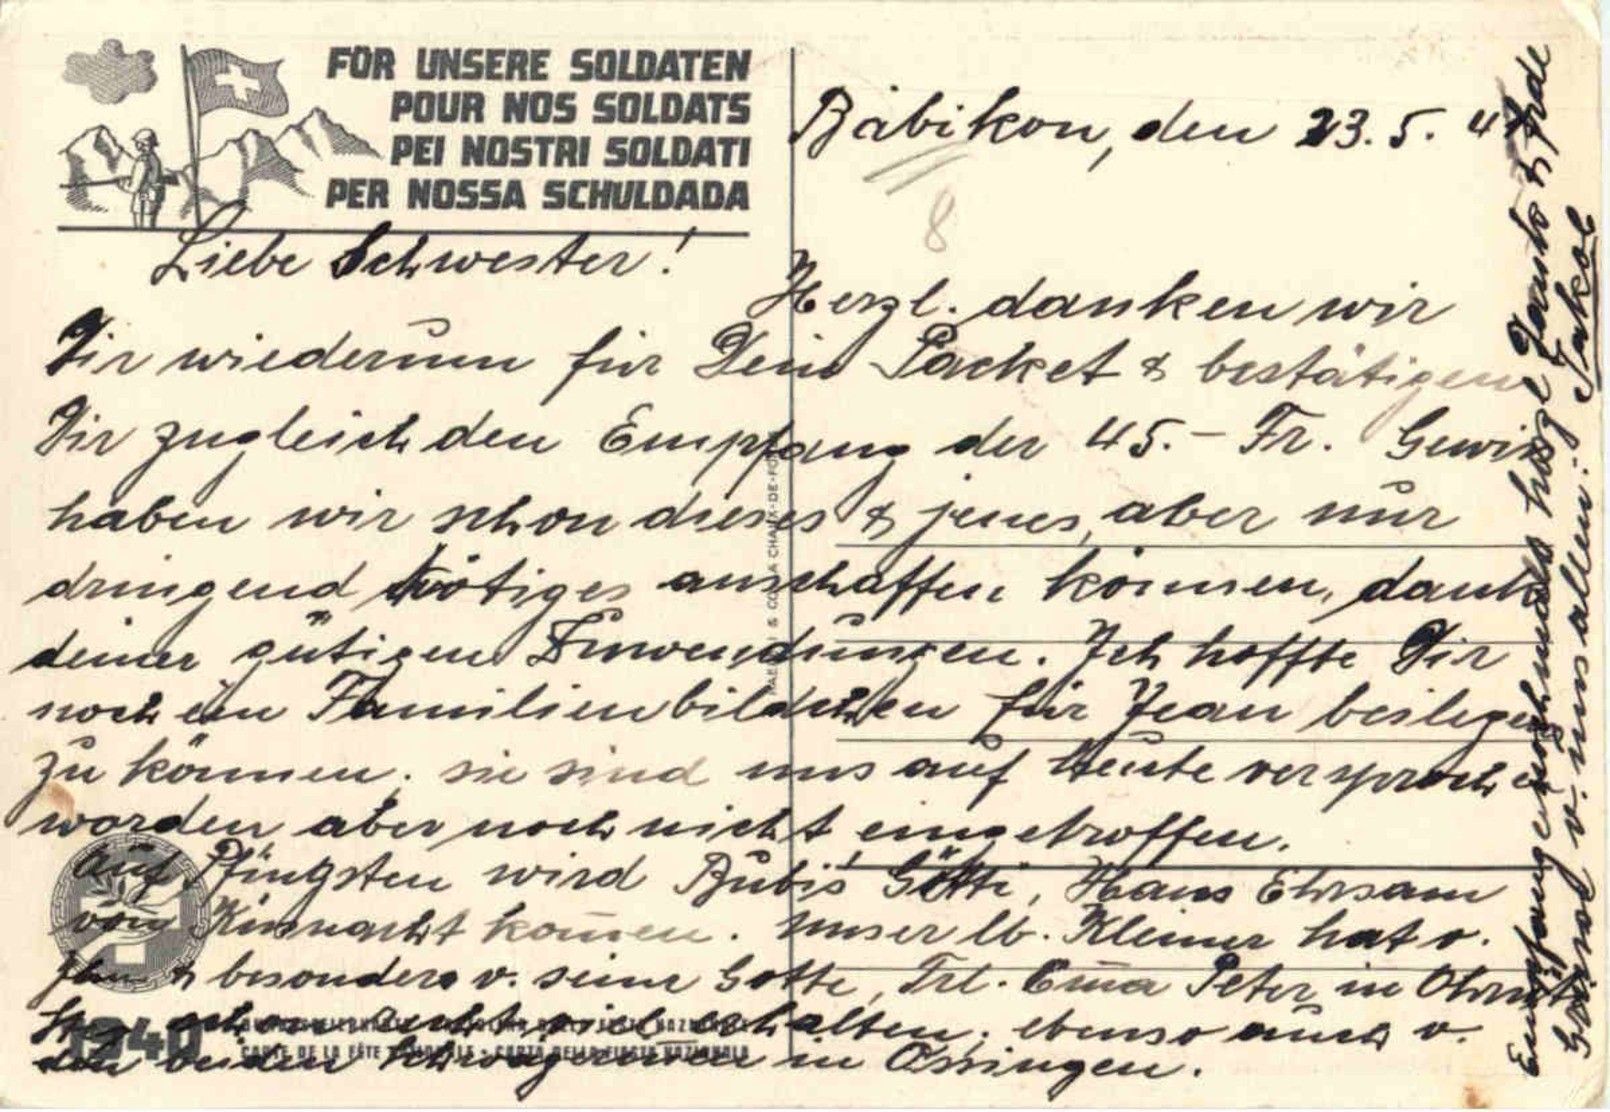 FÜR UNSERE SOLDATEN
POUR NOS SOLDATS
PEI NOSTRI SOLDATI
PER NOSSA SCHULDADA
Bäbikon, den 23. 5. 41
8
Liebe Schwester!
Herzl. danken wir
Dir wiederum für Dein Packet & bestätigen
Dir zugleich den Empfang der 45.- Fr. Gewiss
haben wir schon dieses & jenes, aber nur
dringend nötiges anschaffen können, dank
deiner gütigen Zuwendungen. Ich hoffte Dir
noch ein Familienbildchen für Jean beilegen
zu können. sie sind uns auf heute versprochen
worden aber noch nicht eingetroffen.
Auf Pfingsten wird Bubis Götti, Hans Ehrsam
von Küsnacht kom̄en. Unser lb. Kleiner hat v.
besonders v. seine Gotte, Frl. Em̄a Peter in
erhalten, ebenso auch v.
den beiden Schwägerinnen in Ossingen.
Empfange nochmals herzl Dank &
Grüsse v. uns allen: Jakob
1940
CARTE DE LA FÊTE NATIONALE - CARTA DELLA FESTA NAZIONALE